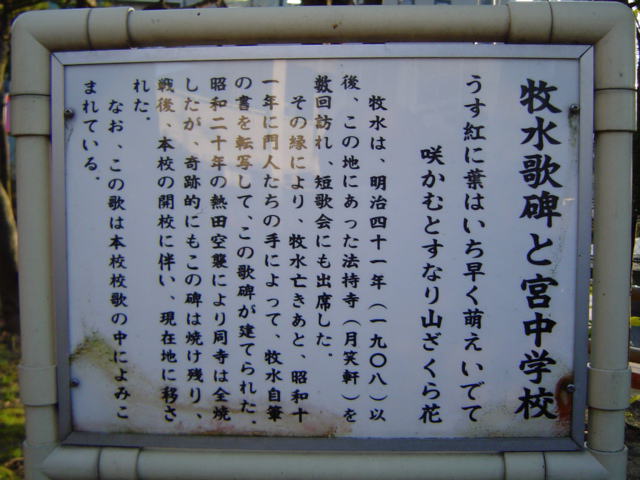 牧水歌碑と宮中学校
うす紅に葉はいち早く萌えいでて
咲かむとすなり山ざくら花
牧水は、明治四十一年(一九〇八)以
後、この地にあった法持寺(月笑軒)を
数回訪れ、短歌会にも出席した。
その縁により、牧水亡きあと、昭和十
一年に門人たちの手によって、牧水自筆
の書を転写して、この歌碑が建てられた。
昭和二十年の熱田空襲により同寺は全焼
したが、奇跡的にもこの碑は焼け残り、
戦後、本校の開校に伴い、現在地に移さ
れた。
なお、この歌は本校校歌の中によみこ
まれている。